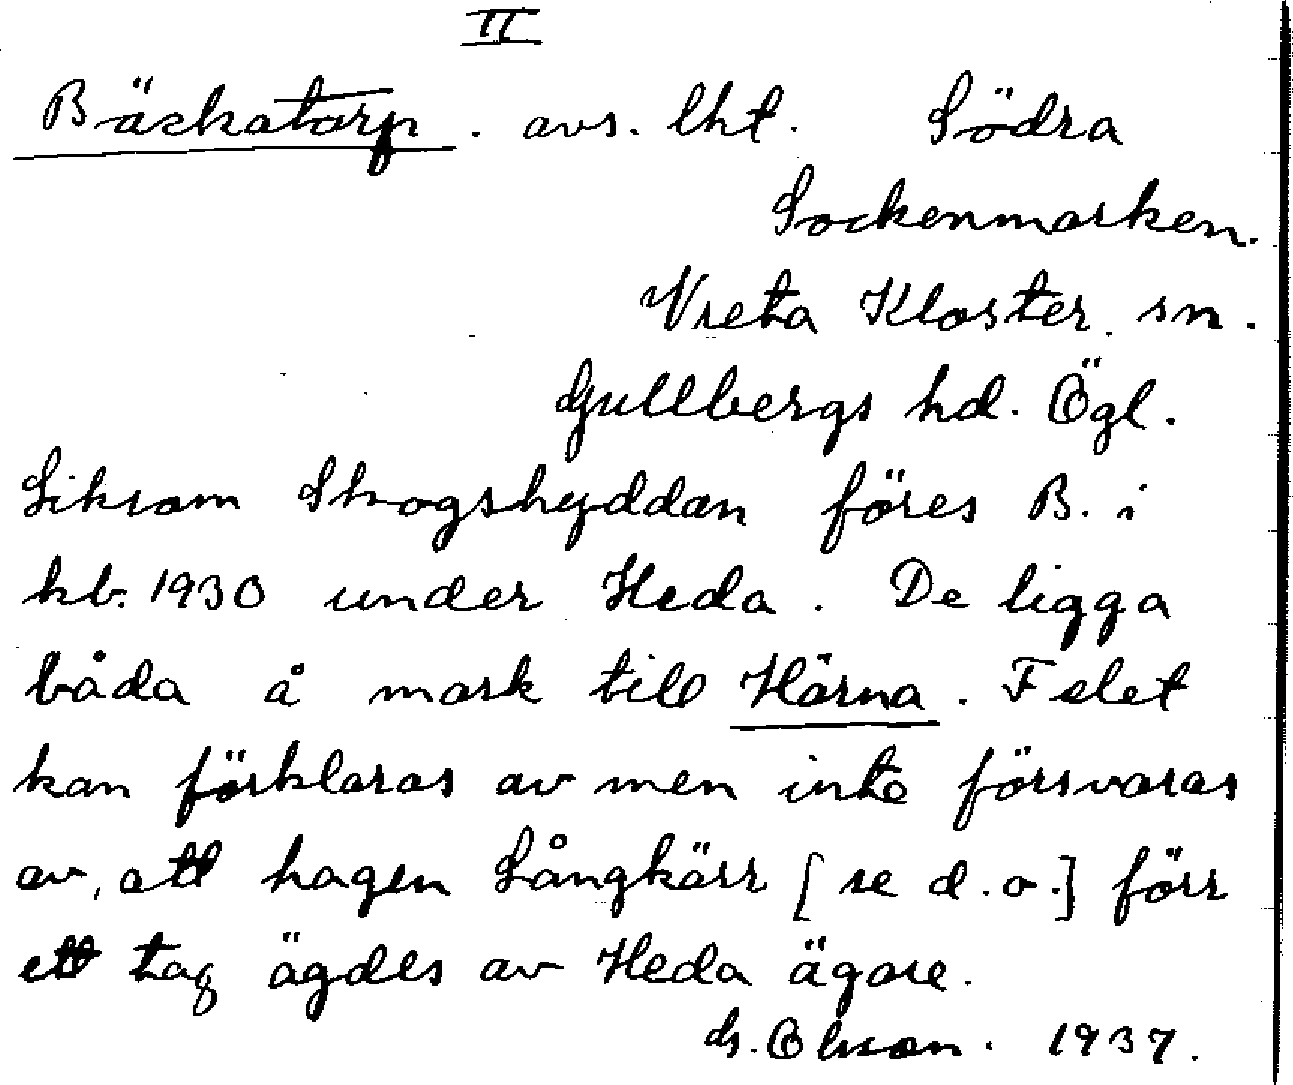 II
Bäckatorp. avs. lht. Södra
Sockenmarken.
Vreta Kloster sn.
Gullbergs hd. Ögl.
Liksom Skogshyddan föres B. i
kb. 1930 under Heda. De ligga
båda å mark till Härna. Felet
kan förklaras av men inte försvaras
av, att hagen Långkärr [se d.o.] förr
ett tag ägdes av Heda ägare.
G. Olsson. 1937.